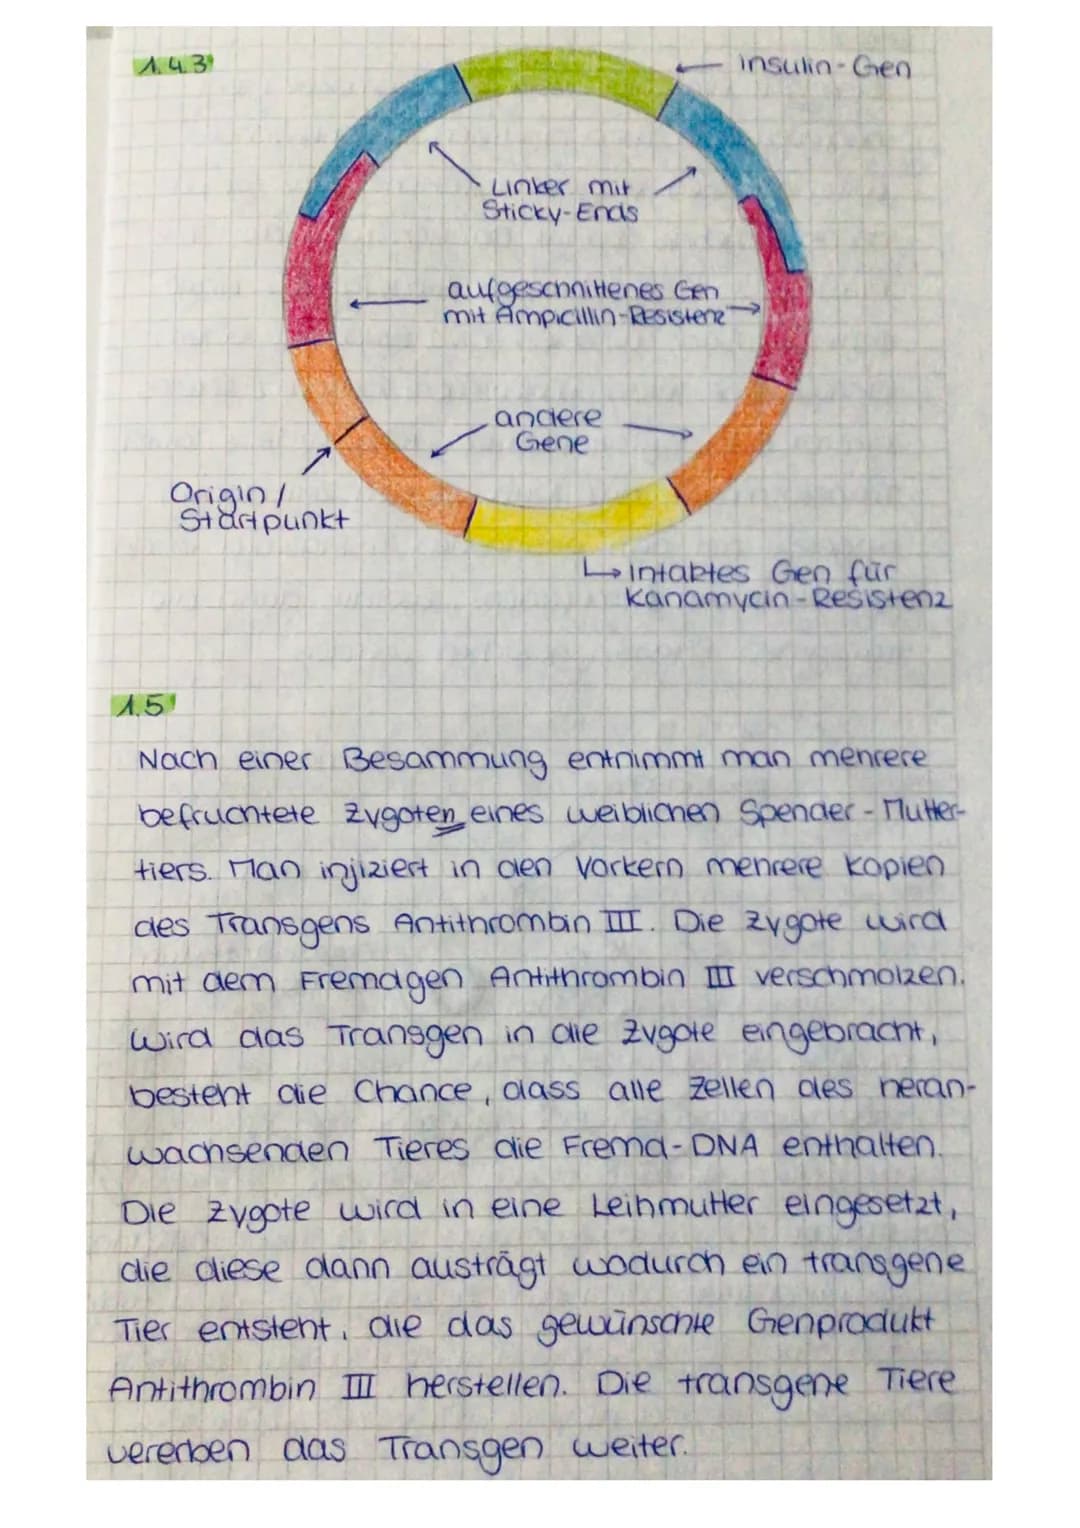 1.4.3
insulin-Gen
Linker mit
Sticky-Ends
aufgeschnittenes Gen
mit Ampicillin-Resistenz
andere
Gene
Origin /
Startpunkt
↳ Intaktes Gen für
Kanamycin-Resistenz
1.5
Nach einer Besammung entnimmt man mehrere
befruchtete Zygoten eines weiblichen Spender-Mutter-
tiers. Man injiziert in den Vorkern mehrere Kopien
des Transgens Antithrombin III. Die Zygote wird
mit dem Fremdgen Antithrombin III verschmolzen.
Wird das Transgen in die Zygote eingebracht,
besteht die Chance, dass alle Zellen des heran-
wachsenden Tieres die Fremd-DNA enthalten.
Die Zygote wird in eine Leihmutter eingesetzt,
die diese dann austrägt wodurch ein transgene
Tier entsteht, die das gewünschte Genprodukt
Antithrombin III herstellen. Die transgene Tiere
vererben das Transgen weiter.